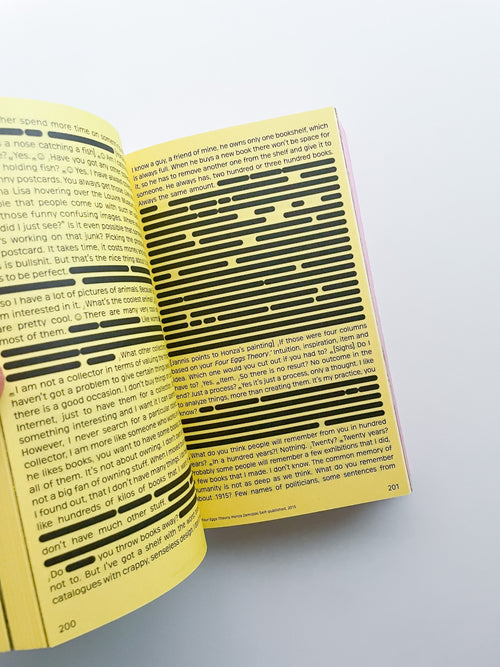 her spend more time on some
s a nose catching a fish]
? „Yes. „☺ ‚Have you got any
holding fish? „☺ Yes. I have also
nny postcards. You always get those
na Lisa hovering over the Louvre
ple that people come up with such
those funny confusing images. Where
did I just see?“ Is it even possible that
's working on that junk? Picking the
postcard. It takes time, it costs money,
is bullshit. But that's the nice thing about
s to be perfect.
so I have a lot of pictures of animals. Because
m interested in it. ‚What's the coolest animal?
are pretty cool. ☺ There are many very cool
most of them. Like
‚What other collec
„I am not a collector in terms of valuing
haven't got a problem to give certain things
there is a good occasion. I don't buy things
Internet, just to have them for a collection.
something interesting and I want it I can
However, I never search for a particular
collector, I am more like someone who
he likes books, you want to have some
all of them. It's not about owning. I don't
not a big fan of owning stuff. When I moved
I found out, that I don't have many things
like hundreds of kilos of books that I
don't have much other stuff.
‚Do you throw books away?
not to. But I've got a shelf with the worst
catalogues with crappy, senseless design
200
I know a guy, a friend of mine, he owns only one bookshelf, which
is always full. When he buys a new book there won't be space for
it, so he has to remove another one from the shelf and give it to
someone. He always has, two hundred or three hundred books.
Always the same amount.
[Jannis points to Honza's painting] ‚If those were four columns
based on your Four Eggs Theory.' Intuition, inspiration, item and
idea. Which one would you cut out if you had to? „[Sighs] Do I
have to? ‚Yes. „Item. ‚So there is no result? No outcome in the
end? Just a process? „Yes it's just a process, only a thought. I like
to analyze things, more than creating them. It's my practice, you
know?
‚What do you think people will remember from you in hundred
years? „In a hundred years?! Nothing. ‚Twenty? „Twenty years?
Probably some people will remember a few exhibitions that I did,
a few books that I made. I don't know. The common memory of
humanity is not as deep as we think. What do you remember
about 1915? Few names of politicians, some sentences from
Four Eggs Theory, Honza Zamojski, Self-published, 2015
201